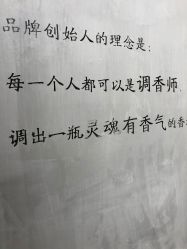 品牌创始人的理念是：
每一个人都可以是调香师，
调出一瓶灵魂有香气的香